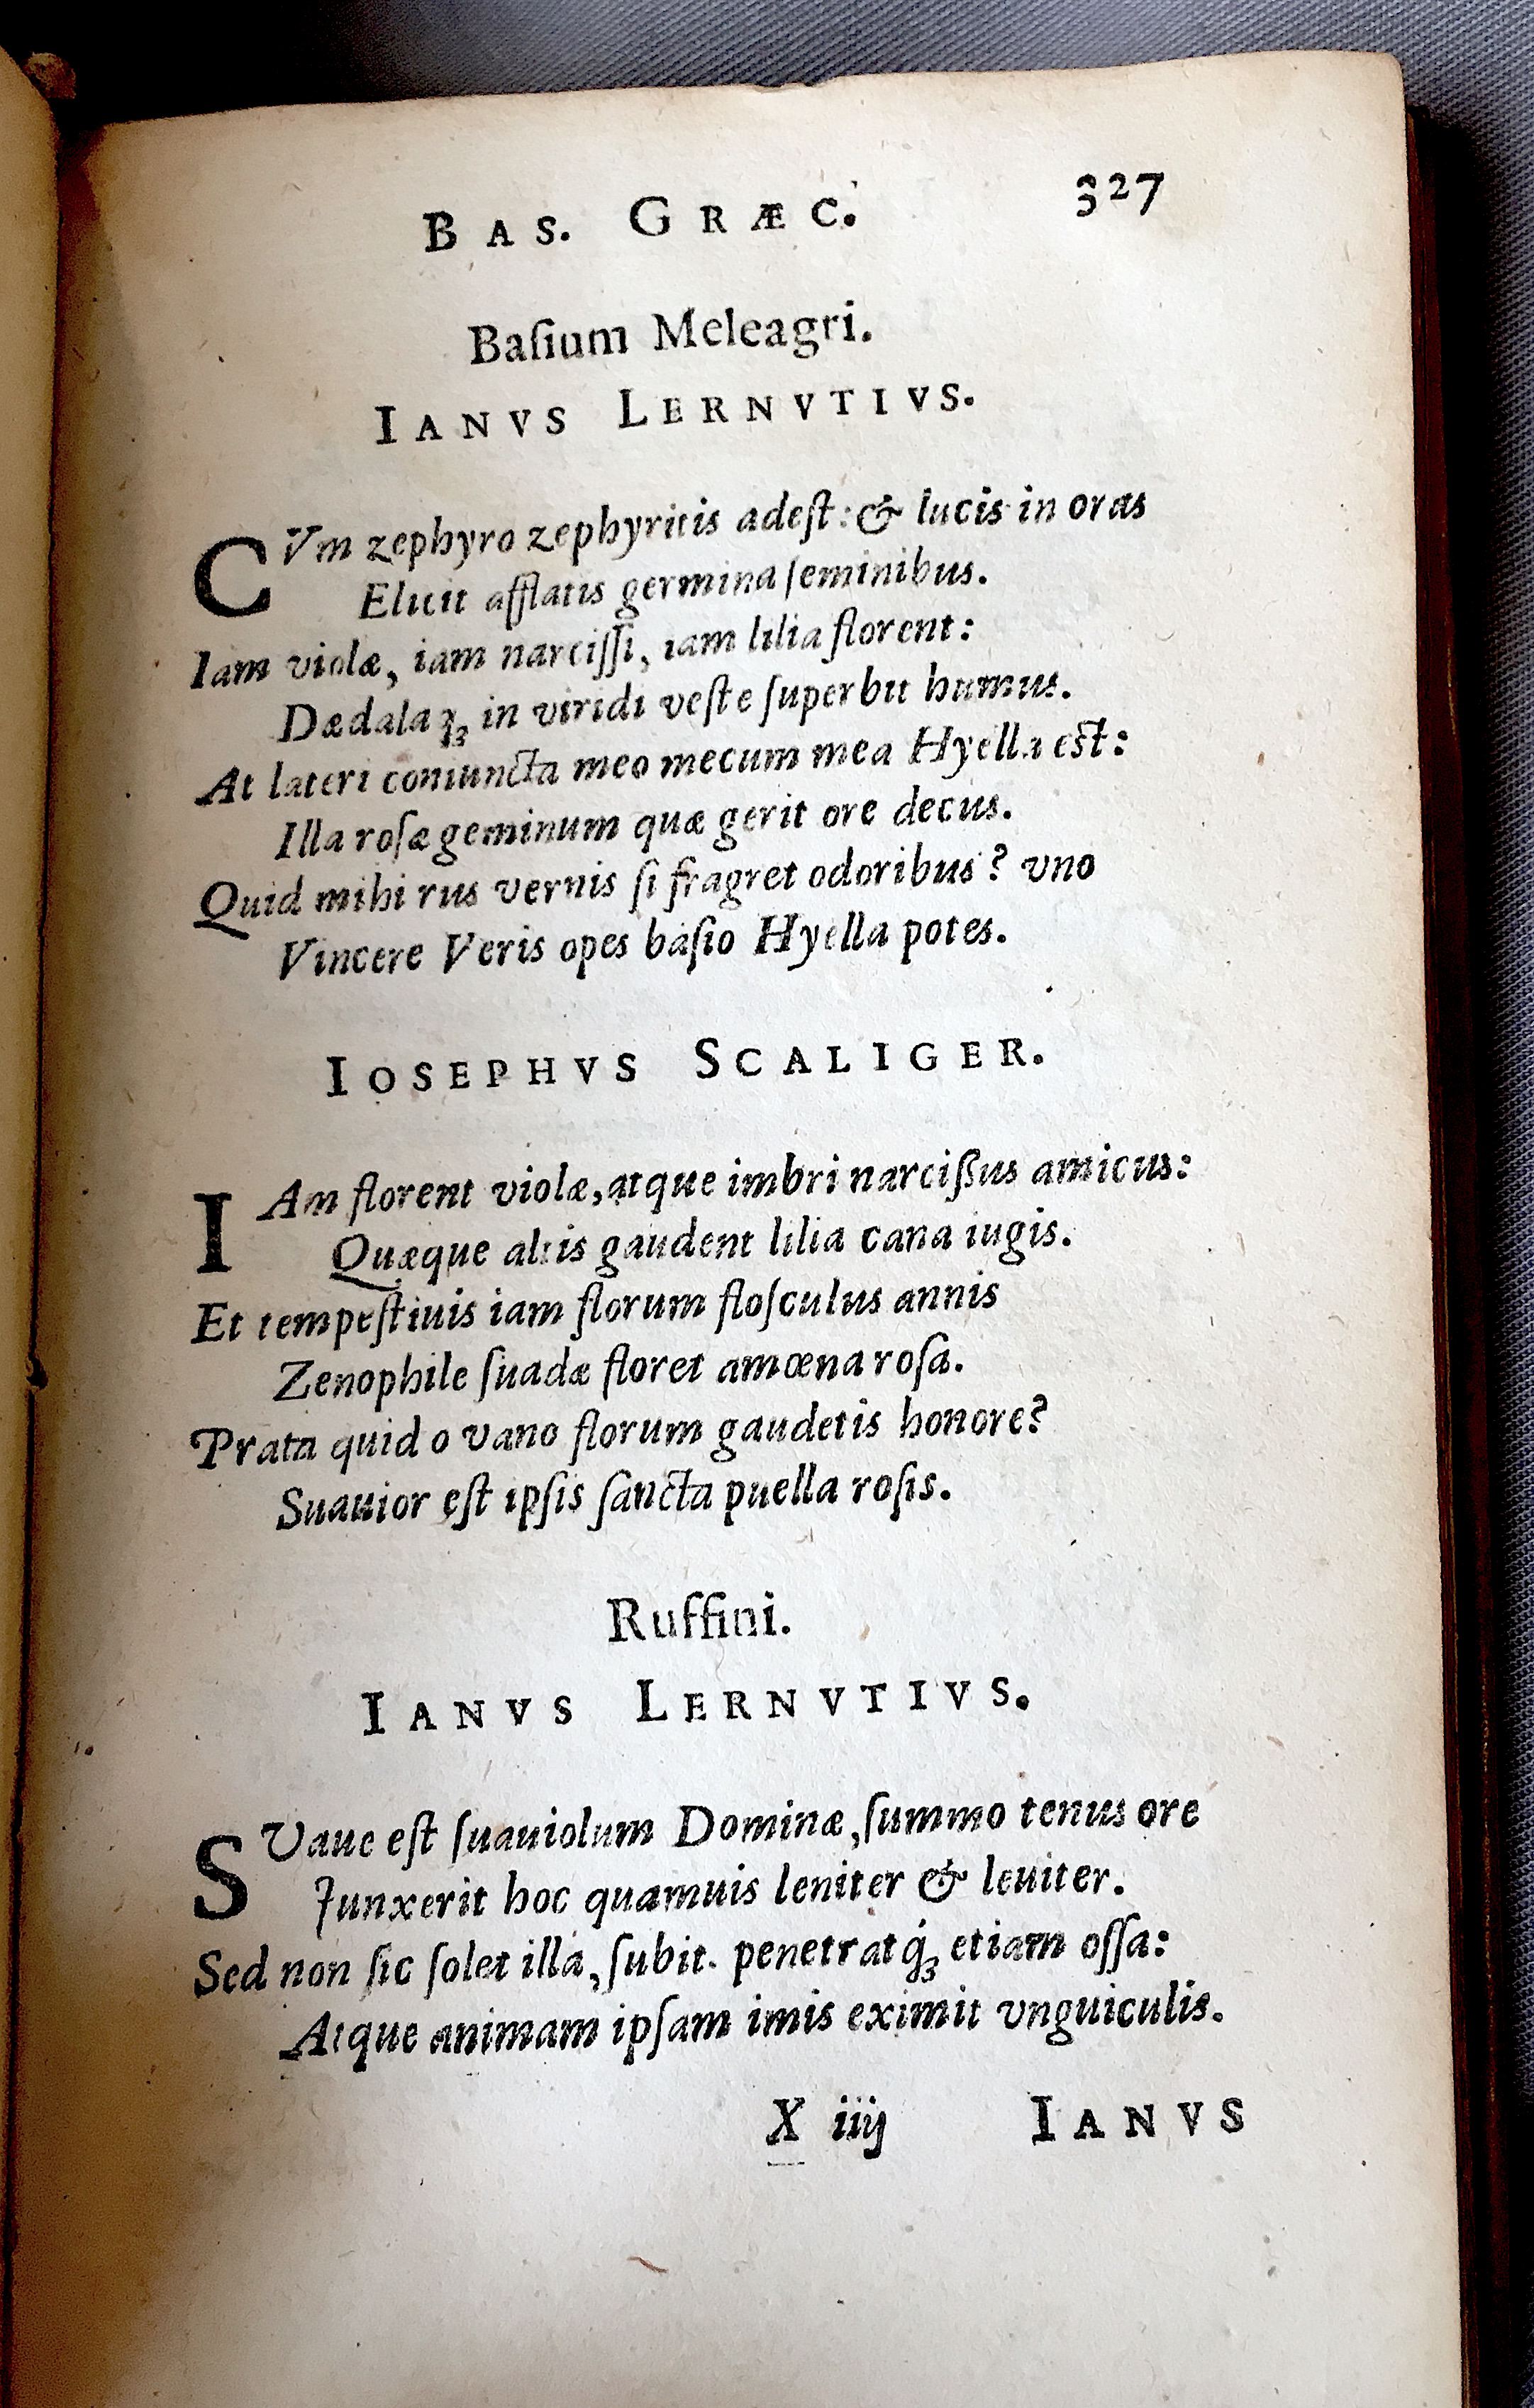 BAS. GRÆC. 327
Baſium Meleagri.
IANVS LERNVTIVS.
CVm zephyro zephyritis adeſt: & lucis in oras
Elicit afflatis germina ſeminibus.
Iam violæ, iam narciſſi, iam lilia florent:
Dædalaq́; in viridi veſte ſuperbit humus.
At lateri coniuncta meo mecum mea Hyella eſt:
Illa roſæ geminum quæ gerit ore decus.
Quid mihi rus vernis ſi fragret odoribus? vno
Vincere Veris opes baſio Hyella potes.
IOSEPHVS SCALIGER.
IAm florent violæ, atque imbri narciſſus amicus:
Quæque altis gaudent lilia cana iugis.
Et tempeſtiuis iam florum floſculus annis
Zenophile ſuadæ floret amœna roſa.
Prata quid o vano florum gaudetis honore?
Suauior eſt ipſis ſancta puella roſis.
Ruffini.
IANVS LERNVTIVS.
SVaue eſt ſuauiolum Dominæ, ſummo tenus ore
Junxerit hoc quamuis leniter & leuiter.
Sed non ſic ſolet illa, ſubit. penetratq́; etiam oſſa:
Atque animam ipſam imis eximit vnguiculis.
X iiij IANVS